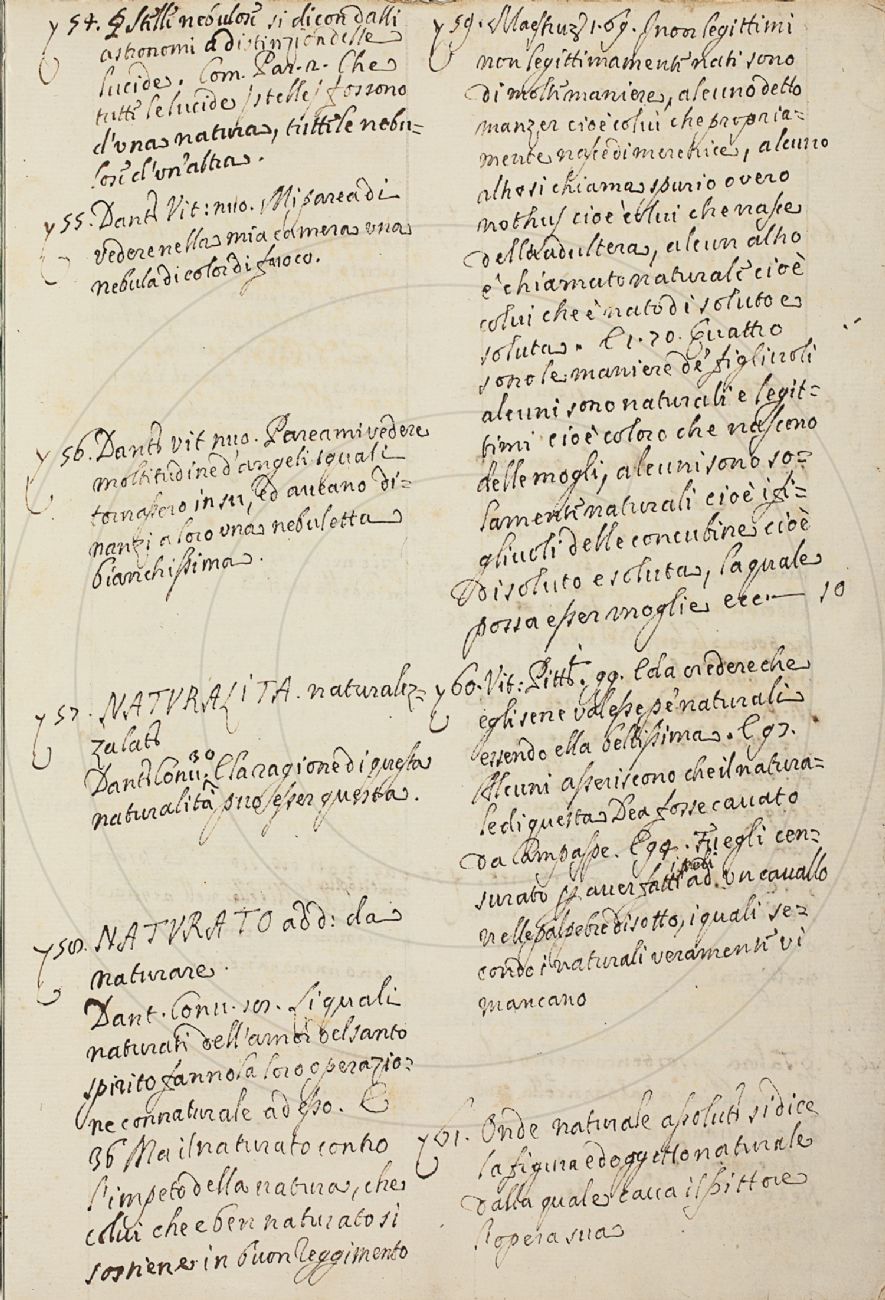 54. § Stelle nebulose si dicon dalli
astronomi a distinzion delle
lucide. Com. Par. 2. Che
tutte le lucide stelle fossono
d'una natura, tutte le nebu=
lose d'un'altra.
55. Dante Vit: nuo. Mi parea di
vedere nella mia camera una
nebula di color di fuoco.
56. Dante vit nuo. Pareami vedere
moltitudine d'angeli i quali
tornassero in su, ed aveano di=
nanzi a loro una nebuletta
bianchissima.
57. NATVRALITA. naturalez=
za late
Dante Conu. 30. E la ragione di questa
naturalità puo esser questa.
58. NATVRATO add: da
naturare.
Dant. Conu. 101. Li quali
naturati dell'amor del santo
spirito fanno la loro operazio=
ne connaturale ad esso. E
36 Ma il naturato contro
l'impeto della natura, che
colui che e ben naturato si
sostiene in buon Reggimento
59. Maestruz 1. 69. I non legittimi
non legittimamente nati sono
di molte maniere, alcuno detto
manzer cioè colui che propria=
mente nasce di meretrice, alcuno
altro si chiama spurio overo
nothus cioè colui che nasce
dell'adultera, alcun altro
è chiamato naturale cioè
colui che è nato di soluto e
soluta. E 1. 70. Quattro
sono le maniere de' figliuoli
alcuni sono naturali e legit=
timi cioè coloro che nascono
delle mogli, alcuni sono so=
lamente naturali cioè i fi=
gliuoli delle concubine cioè
di soluto e soluta, la quale
possa esser moglie ecc.— 10
60. Vit: Pitt. 99. E da credere che
egli se ne valesse pe' naturali
essendo ella bellissima. E 93.
Alcuni asseriscono che il natura=
le di questa Dea fosse cavato
da Campaspe. E 94. Fu egli cen=
surato p aver fatti i peli ad un cavallo
nelle palpebre di sotto, i quali se=
condo i naturali veramente vi
mancano
61. Onde naturale assolute si dice
la figura ed oggetto naturale
dalla quale cava il Pittore
l'opera sua